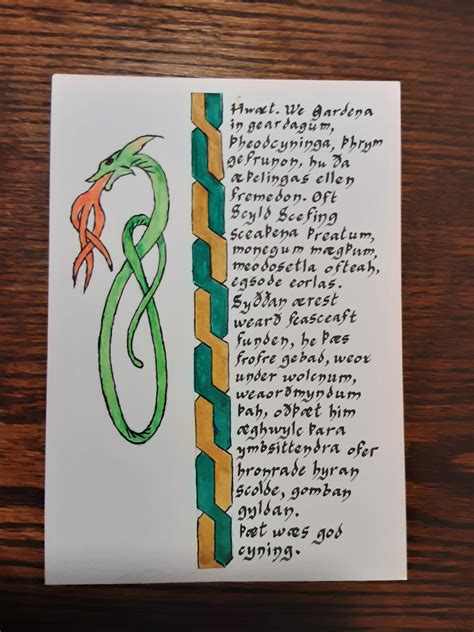 Hwæt. We Gardena
in geardagum,
þheodcyninga, þhrym
gefrunon, hu ða
æþelingas ellen
fremedon. Oft
Scyld Scefing
sceaþena þreatum,
monegum mægþum,
meodosetla ofteah,
egsode eorlas.
Syððan ærest
weard feasceaft
funden, he þæs
frofre gebad, weox
under wolcnum,
weaorðmyndum
þah, oðþæt him
æghwylc þara
ymbsittendra ofer
hronrade hyran
scolde, gomban
gyldan.
Þæt wæs god
cyning.